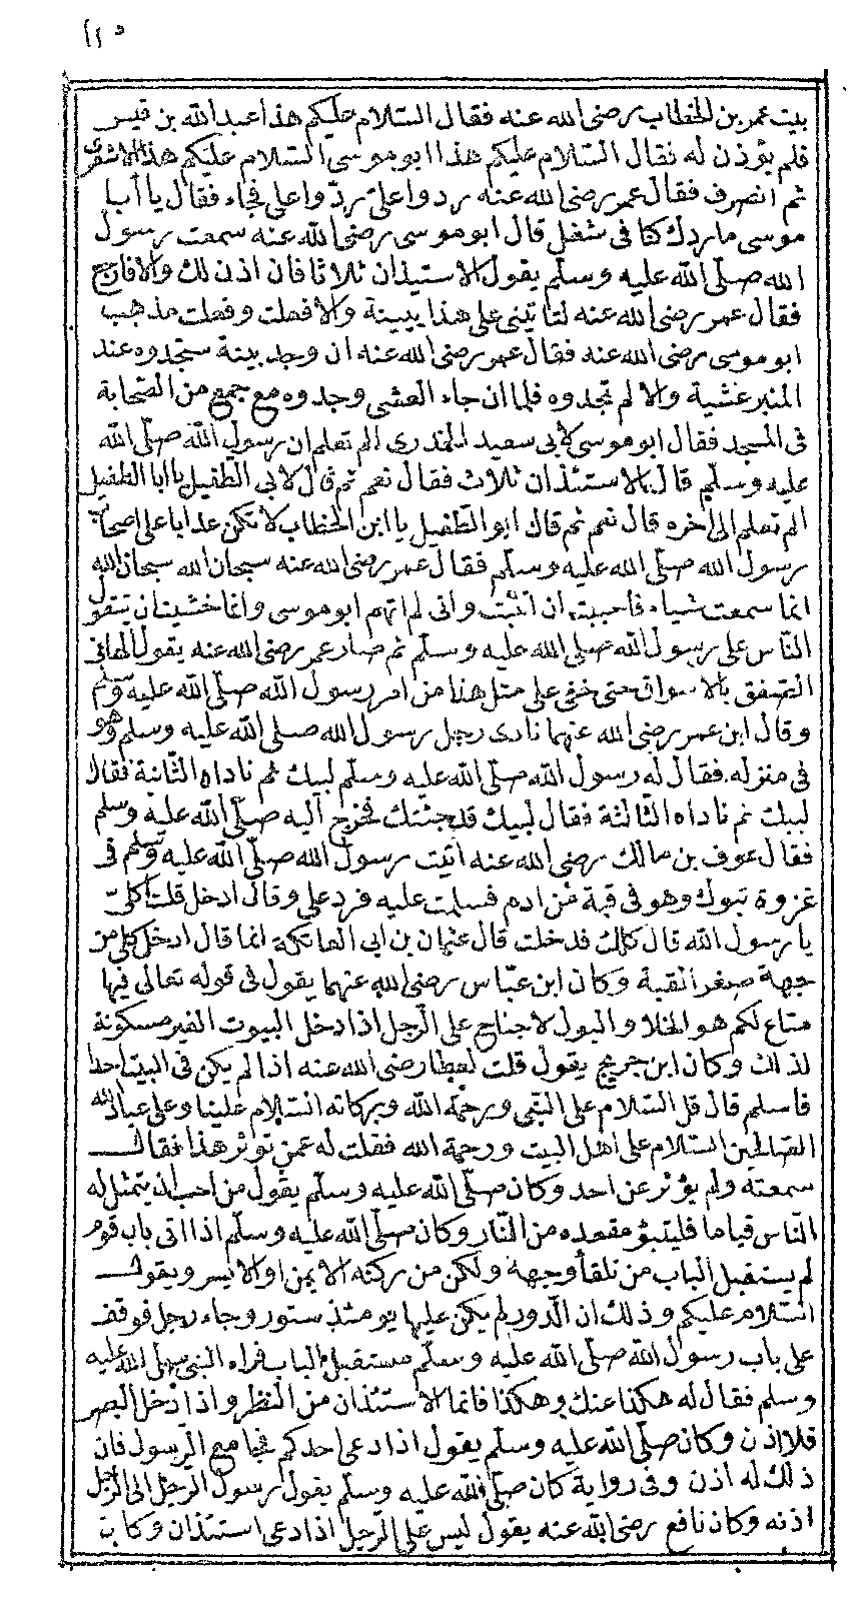 ١١٥
بيت عمر بن الخطاب رضى الله عنه فقال السلام عليكم هذا عبد الله بن قيس
فلم يؤذن له فقال السلام عليكم هذا ابو موسى السلام عليكم هذا الاشعرى
ثم انصرف فقال عمر رضى الله عنه ردوا على ردوا على فجاء فقال يا أبا
موسى ما ردك كنا فى شغل قال ابو موسى رضى الله عنه سمعت رسول
الله صلى الله عليه وسلم يقول الاستيذان ثلاثا فان اذن لك والا فارجع
فقال عمر رضى الله عنه لتاتينى على هذا ببينة والا فعلت وفعلت فذهب
ابو موسى رضى الله عنه فقال عمر رضى الله عنه ان وجد بينة ستجدوه عند
المنبر عشية والا لم تجدوه فلما ان جاء العشى وجدوه مع جمع من الصحابة
فى المسجد فقال ابو موسى لابى سعيد الخدرى الم تعلم ان رسول الله صلى الله
عليه وسلم قال الاستئذان ثلاث فقال نعم ثم قال لابى الطفيل يا ابا الطفيل
الم تعلم الى اخره قال نعم ثم قال ابو الطفيل يا ابن الخطاب لا تكن عذابا على اصحاب
رسول الله صلى الله عليه وسلم فقال عمر رضى الله عنه سبحان الله سبحان الله
انما سمعت شياء فاحببت ان اتثبت وانى لم اتهم ابو موسى وانما خشيت ان يتقول
الناس على رسول الله صلى الله عليه وسلم ثم صار عمر رضى الله عنه يقول الهانى
الصفق بالاسواق حتى خفى على مثل هذا من امر رسول الله صلى الله عليه وسلم
وقال ابن عمر رضى الله عنهما نادى رجل رسول الله صلى الله عليه وسلم وهو
فى منزله فقال له رسول الله صلى الله عليه وسلم لبيك ثم ناداه الثانية فقال
لبيك ثم ناداه الثالثة فقال لبيك قد جئتك فخرج اليه صلى الله عليه وسلم
فقال عوف بن مالك رضى الله عنه اتيت رسول الله صلى الله عليه وسلم فى
غزوة تبوك وهو فى قبة من ادم فسلمت عليه فرد على وقال ادخل قلت اكلى
يا رسول الله قال كلك فدخلت قال عثمان بن ابى العاتكة انما قال ادخل كلى من
جهة صغر القبة وكان ابن عباس رضى الله عنهما يقول فى قوله تعالى فيها
متاع لكم هو الخلا والبول لا جناح على الرجل اذا دخل البيوت الغير مسكونة
لذلك وكان ابن جريج يقول قلت لعطا رضى الله عنه اذا لم يكن فى البيت احد
فاسلم قال قل السلام على النبى ورحمة الله وبركاته السلام علينا وعلى عباد الله
الصالحين السلام على اهل البيت ورحمة الله فقلت له عمن تؤثر هذا فقال
سمعته ولم يؤثر عن احد وكان صلى الله عليه وسلم يقول من احب ان يتمثل له
الناس قياما فليتبؤ مقعده من النار وكان صلى الله عليه وسلم اذا اتى باب قوم
لم يستقبل الباب من تلقأ وجهه ولكن من ركنه الايمن او الايسر ويقول
السلام عليكم وذلك ان الدور لم يكن عليها يومئذ ستور وجاء رجل فوقف
على باب رسول الله صلى الله عليه وسلم مستقبل الباب فراه النبى صلى الله عليه
وسلم فقال له هكذا عنك وهكذا فانما الاستئذان من النظر واذا دخل البصر
فلا اذن وكان صلى الله عليه وسلم يقول اذا دعى احدكم فجا مع الرسول فان
ذلك له اذن وفى رواية كان صلى الله عليه وسلم يقول رسول الرجل الى الرجل
اذنه وكان نافع رضى الله عنه يقول ليس على الرجل اذا دعى استئذان وكان